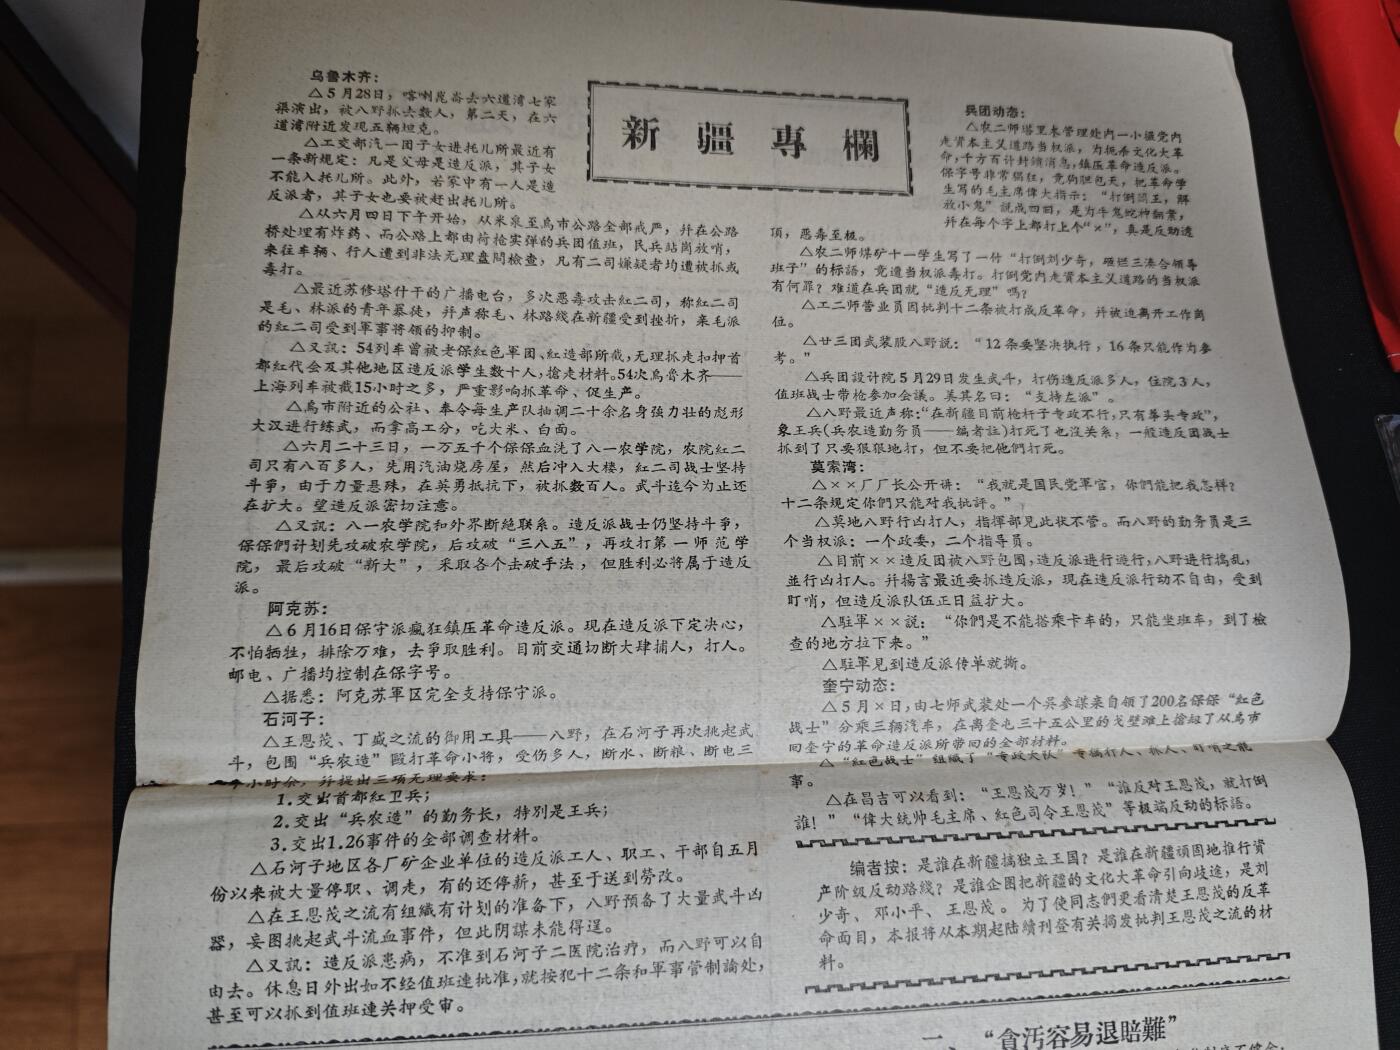 新疆專欄
乌鲁木齐：
△5月28日，喀喇崑崙去六道湾七家
渠演出，被八野抓去数人，第二天，在六
道湾附近发现五辆坦克。
△工交部汽一团子女进托儿所最近有
一条新规定：凡是父母是造反派，其子女
不能入托儿所。此外，若家中有一人是造
反派者，其子女也要被赶出托儿所。
△从六月四日下午开始，从米泉至烏市公路全部戒严，幷在公路
桥处埋有炸药、而公路上都由荷抢实弹的兵团值班，民兵站崗放哨，
来往车辆、行人遭到非法无理盘問检查，凡有二司嫌疑者均遭被抓或
毒打。
△最近苏修塔什干的广播电台，多次恶毒攻击紅二司，称紅二司
是毛、林派的青年暴徒，幷声称毛、林路綫在新疆受到挫折，亲毛派
的紅二司受到軍事将领的抑制。
△又訊：54列车曾被老保紅色軍团、紅造部所截，无理抓走扣押首
都紅代会及其他地区造反派学生数十人，搶走材料。54次烏鲁木齐——
上海列车被截15小时之多，严重影响抓革命、促生产。
△烏市附近的公社、奉令每生产队抽调二十余名身强力壮的彪形
大汉进行练武，而拿高工分，吃大米、白面。
△六月二十三日，一万五千个保保血洗了八一农学院，农院紅二
司只有八百多人，先用汽油烧房屋，然后冲入大楼，紅二司战士坚持
斗爭，由于力量悬殊，在英勇抵抗下，被抓数百人。武斗迄今为止还
在扩大。望造反派密切注意。
△又訊：八一农学院和外界断絕联系。造反派战士仍坚持斗爭，
保保們计划先攻破农学院，后攻破“三八五”，再攻打第一师范学
院，最后攻破“新大”，采取各个击破手法，但胜利必将属于造反
派。
阿克苏：
△6月16日保守派瘋狂鎮压革命造反派。现在造反派下定决心，
不怕牺牲，排除万难，去爭取胜利。目前交通切断大肆捕人，打人。
邮电、广播均控制在保字号。
△据悉：阿克苏軍区完全支持保守派。
石河子：
△王恩茂、丁盛之流的御用工具——八野，在石河子再次挑起武
斗，包围“兵农造”毆打革命小将，受伤多人，断水、断粮、断电三
小时余，幷提出三项无理要求：
1.交出首都紅卫兵；
2.交出“兵农造”的勤务长，特别是王兵；
3.交出1.26事件的全部调查材料。
△石河子地区各厂矿企业单位的造反派工人、职工、干部自五月
份以来被大量停职、调走，有的还停薪，甚至于送到劳改。
△在王恩茂之流有组織有计划的准备下，八野预备了大量武斗凶
器，妄图挑起武斗流血事件，但此阴謀未能得逞。
△又訊：造反派患病，不准到石河子二医院治疗，而八野可以自
由去。休息日外出如不经值班連批准，就按犯十二条和軍事管制論处，
甚至可以抓到值班連关押受审。
兵团动态：
△农二师塔里木管理处内一小撮党内
走資本主义道路当权派，为扼杀文化大革
命，千方百计封鎖消息，鎮压革命造反派。
保字号非常猖狂，竟狗胆包天，把革命学
生写的毛主席偉大指示：“打倒閻王，解
放小鬼”說成四旧，是为牛鬼蛇神翻案，
幷在每个字上都打上个“×”，真是反动透
頂，恶毒至极。
△农二师煤矿十一学生写了一付“打倒刘少奇，砸烂三湊合領导
班子”的标語，竟遭当权派毒打。打倒党内走資本主义道路的当权派
有何罪？难道在兵团就“造反无理”嗎？
△工二师营业员因批判十二条被打成反革命，幷被迫离开工作崗
位。
△廿三团武装股八野說：“12条要坚决执行，16条只能作为参
考。”
△兵团設计院5月29日发生武斗，打伤造反派多人，住院3人，
值班战士带枪参加会議。美其名曰：“支持左派”。
△八野最近声称：“在新疆目前枪杆子专政不行，只有拳头专政”，
象王兵（兵农造勤务員——編者註）打死了也沒关系，一般造反团战士
抓到了只要狠狠地打，但不要把他們打死。
莫索湾：
△××厂厂长公开讲：“我就是国民党軍官，你們能把我怎样？
十二条規定你們只能对我批評。”
△莫地八野行凶打人，指揮部见此状不管。而八野的勤务員是三
个当权派：一个政委，二个指导員。
△目前××造反团被八野包围，造反派进行遊行，八野进行搗乱，
並行凶打人。幷揚言最近要抓造反派，现在造反派行动不自由，受到
盯哨，但造反派队伍正日益扩大。
△駐軍××說：“你們是不能搭乘卡车的，只能坐班车，到了檢
查的地方拉下来。”
△駐軍見到造反派传单就撕。
奎宁动态：
△5月×日，由七师武装处一个吳参謀亲自領了200名保保“紅色
战士”分乘三辆汽车，在离奎屯三十五公里的戈壁滩上搶却了从烏市
回奎宁的革命造反派所带回的全部材料。
△“紅色战士”组織了“专政大队”专搞打人、抓人、盯哨之能
事。
△在昌吉可以看到：“王恩茂万岁！”“誰反对王恩茂，就打倒
誰！”“偉大統帅毛主席、紅色司令王恩茂”等极端反动的标語。
编者按：是誰在新疆搞独立王国？是誰在新疆頑固地推行資
产阶级反动路綫？是誰企图把新疆的文化大革命引向歧途，是刘
少奇、邓小平、王恩茂。为了使同志們更看清楚王恩茂的反革
命面目，本报将从本期起陆續刊登有关揭发批判王恩茂之流的材
料。
二、“貪污容易退賠難”